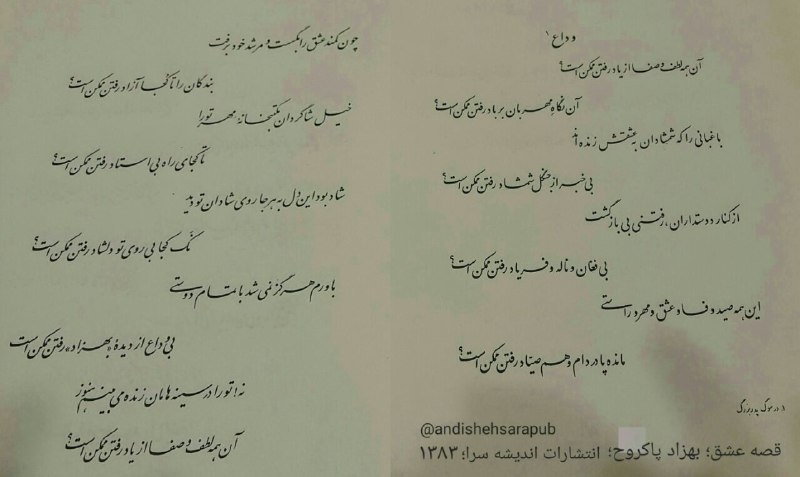 وداع ۱
آن همه لطف و صفا از یاد رفتن ممکن است؟
آن نگاه مهربان بر باد رفتن ممکن است؟
باغبانی را که شمشادان به عشقش زنده اند
بی خبر از جنگل شمشاد رفتن ممکن است؟
از کنار دوستداران، رفتنی بی بازگشت
بی فغان و ناله و فریاد رفتن ممکن است؟
این همه صید وفا و عشق و مهر و راستی
مانده پا در دام و هم صیاد رفتن ممکن است؟
۱ در سوگ پدربزرگ
چون کمند عشق را بگسست و مرشد خود برفت
بندگان را تا کجا آزاد رفتن ممکن است؟
خیل شاگردان مکتبخانهٔ مهر تو را
تا کجای راه بی استاد رفتن ممکن است؟
شاد بود این دل به هر جا روی شادان تو دید
نک کجا بی روی تو دلشاد رفتن ممکن است؟
باورم هرگز نمی شد با تمام دوستی
بی وداع از دیدهٔ «بهزاد» رفتن ممکن است
نه! تو را در سینه هامان زنده می بینم هنوز
آن همه لطف و صفا از یاد رفتن ممکن است؟
@andishehsarapub
قصه عشق؛ بهزاد پاکروح؛ انتشارات اندیشه سرا؛ ۱۳۸۳